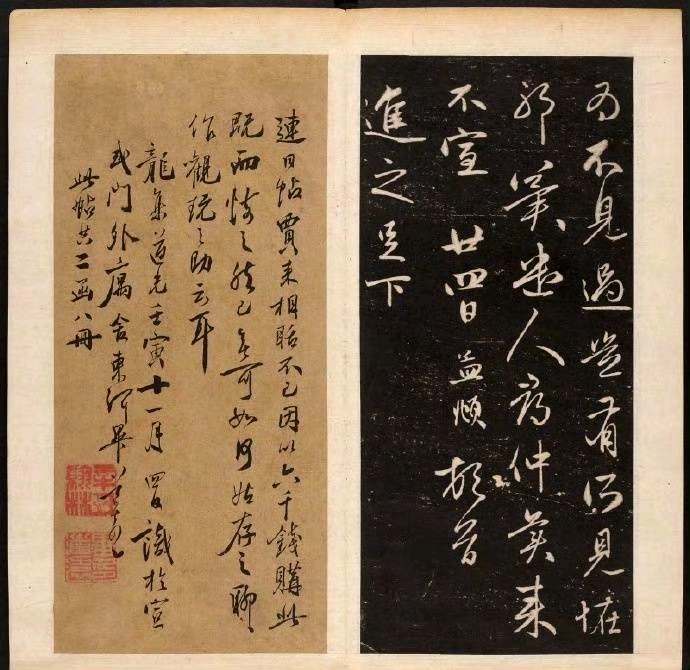 不見過豈有見慵
耶人為仲來
不宣 廿四日 孟頫 頓首
進之足下
連日帖賈來相聒不已因以六千錢購此
既而悔之然已無可如何姑存之聊
作觀玩之助云耳
龍集道光壬寅十一月四日識於宣
武門外寓舍東河畢
此帖共二函八冊